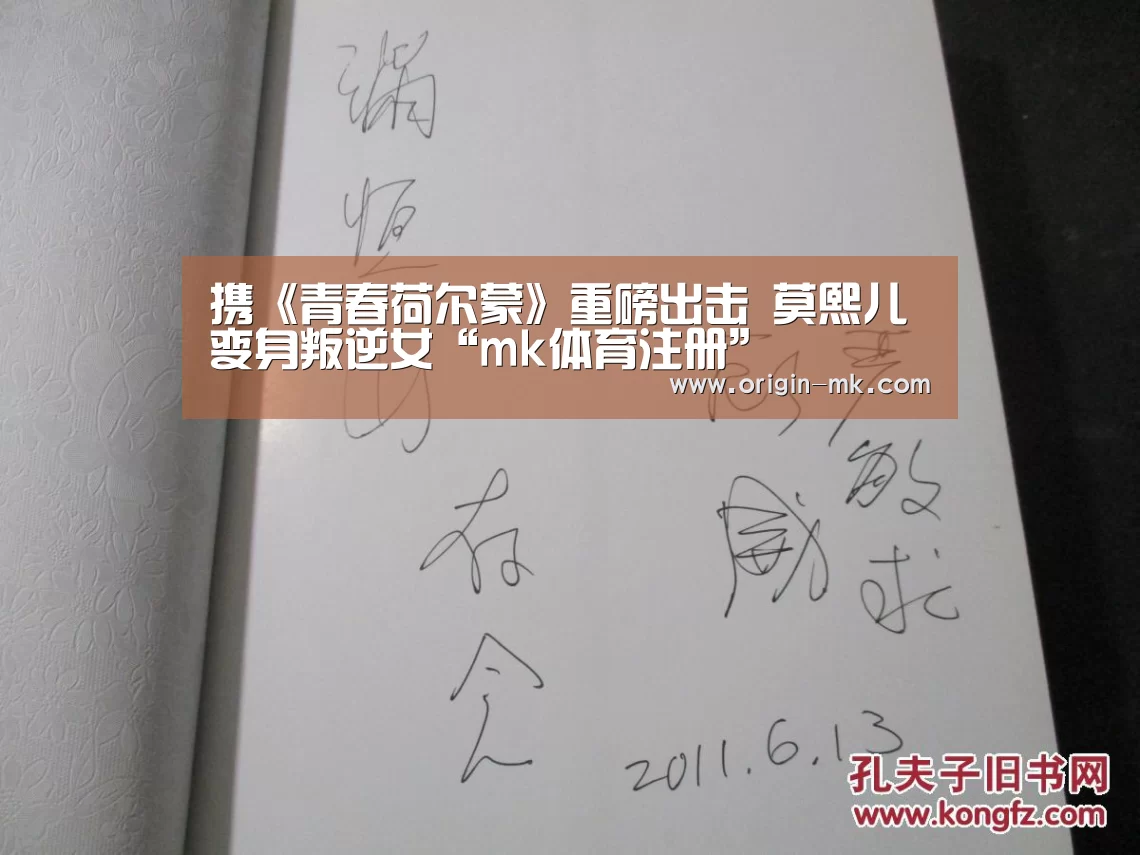 携《青春荷尔蒙》重磅出击 莫熙儿
变身叛逆女“mk体育注册”
www.origin-mk.com
满恒
存念
顾威
严敏求
2011.6.13
孔夫子旧书网
www.kongfz.com